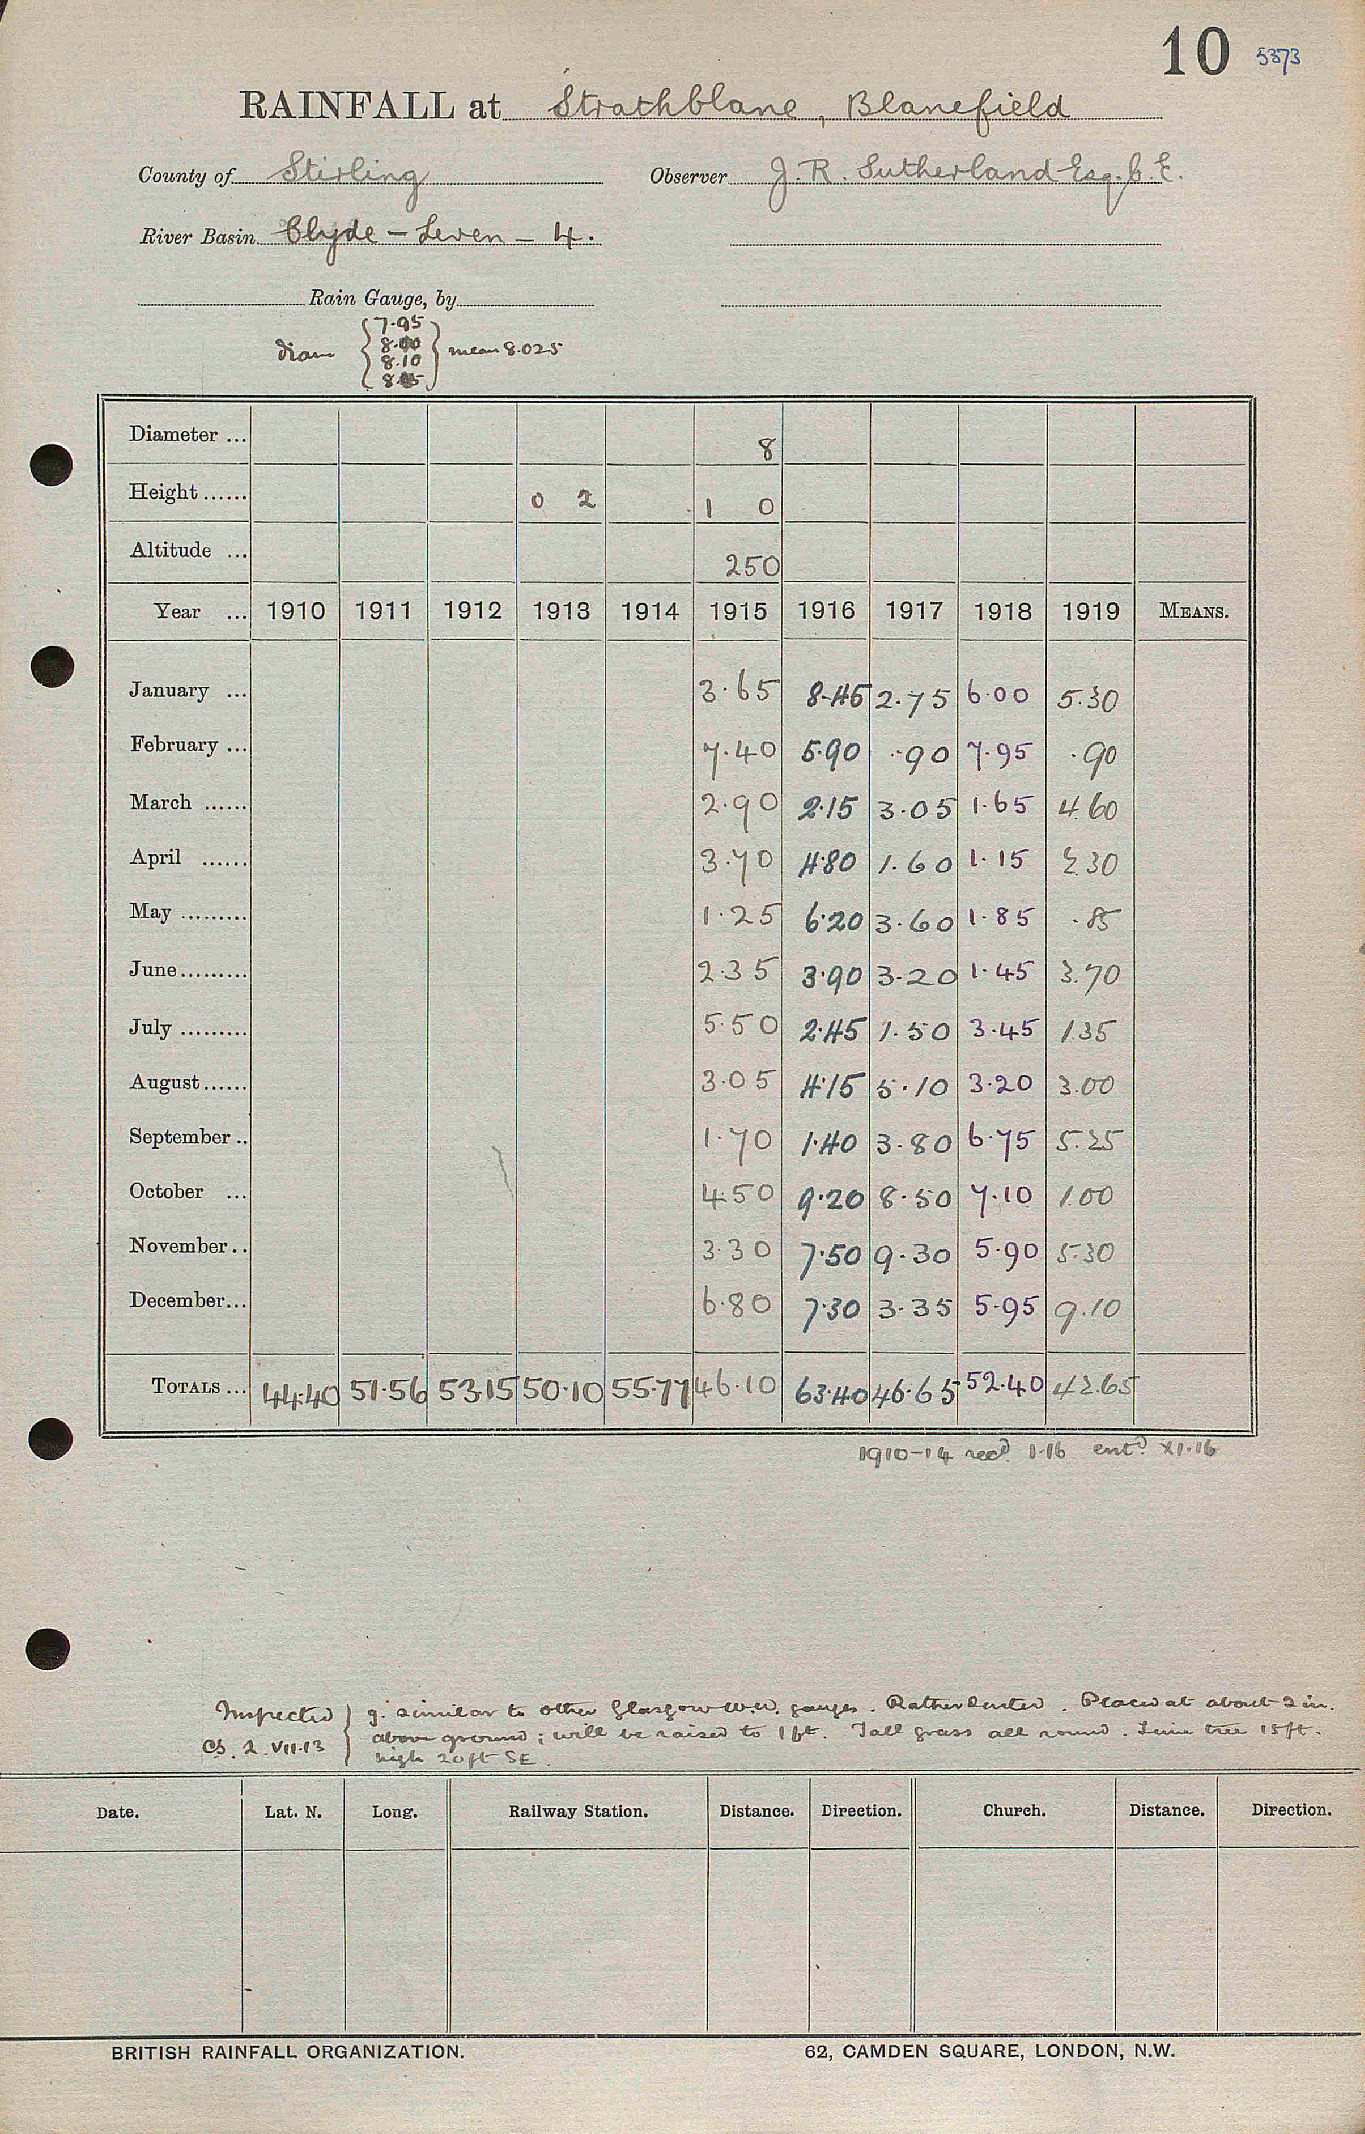 10 5373
RAINFALL at Strathblane, Blanefield
County of Stirling Observer J. R. Sutherland Esq. C.E.
River Basin Clyde - Leven - 4.
Rain Gauge, by
7.95
8.00
diam mean 8.025
8.10
8.05
Diameter ... 8
Height ...... 0 2 1 0
Altitude ... 250
Year ... 1910 1911 1912 1913 1914 1915 1916 1917 1918 1919 MEANS.
January ... 3.65 8.45 2.75 6.00 5.30
February ... 7.40 5.90 .90 7.95 .90
March ...... 2.90 2.15 3.05 1.65 4.60
April ...... 3.70 4.80 1.60 1.15 2.30
May ......... 1.25 6.20 3.60 1.85 .85
June ......... 2.35 3.90 3.20 1.45 3.70
July ......... 5.50 2.45 1.50 3.45 1.35
August ...... 3.05 4.15 5.10 3.20 3.00
September .. 1.70 1.40 3.80 6.75 5.25
October ... 4.50 9.20 8.50 7.10 1.00
November .. 3.30 7.50 9.30 5.90 5.30
December ... 6.80 7.30 3.35 5.95 9.10
TOTALS ... 44.40 51.56 53.15 50.10 55.77 46.10 63.40 46.65 52.40 42.65
1910-14 recd. 1.16 entd. XI.16
Inspected g. similar to other Glasgow W.W. gauges. Rather dented. Placed at about 2 in.
CS. 2.VII.13 above ground; will be raised to 1 ft. Tall grass all round. tree 15 ft.
high 20 ft SE.
Date. Lat. N. Long. Railway Station. Distance. Direction. Church. Distance. Direction.
BRITISH RAINFALL ORGANIZATION. 62, CAMDEN SQUARE, LONDON, N.W.